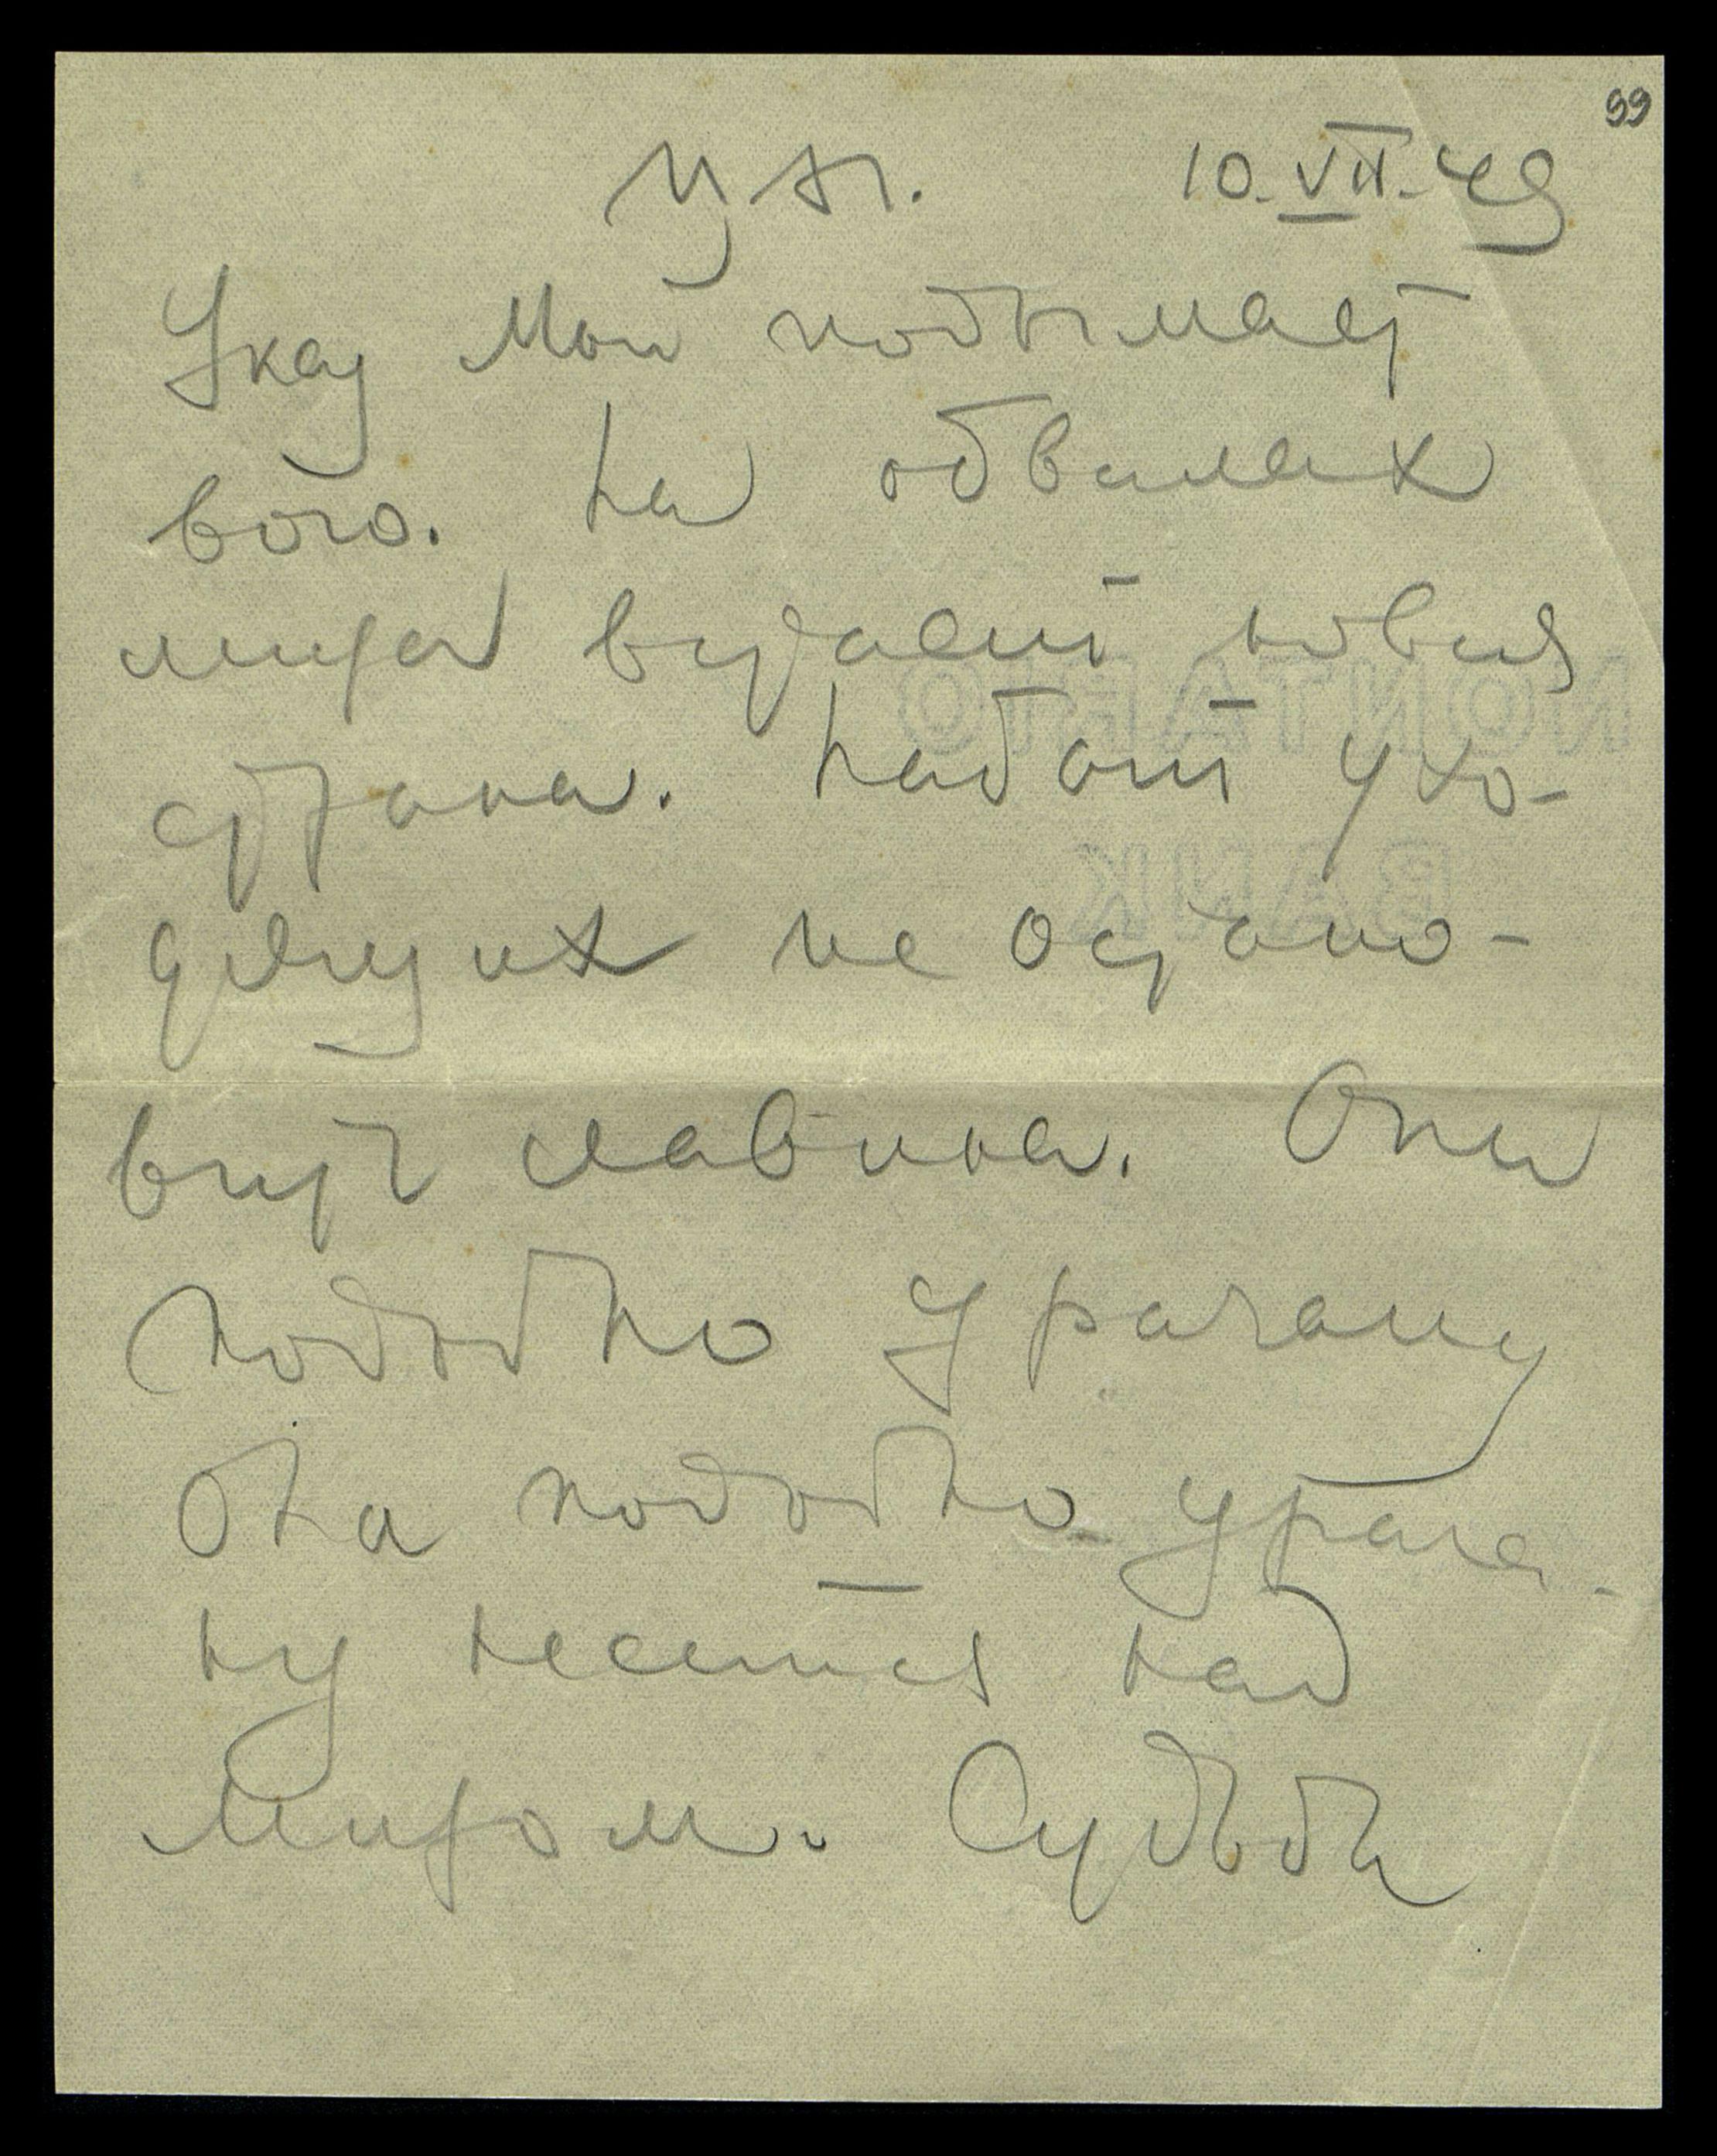 99
10.VII.49
Указ Мой подымает
На обвалах
мира встает новая
страна. Набат ухо-
дящих не остано-
вит лавина. Она
подобно урагану
Она подобно урага-
ну несется над
Миром. Судьба